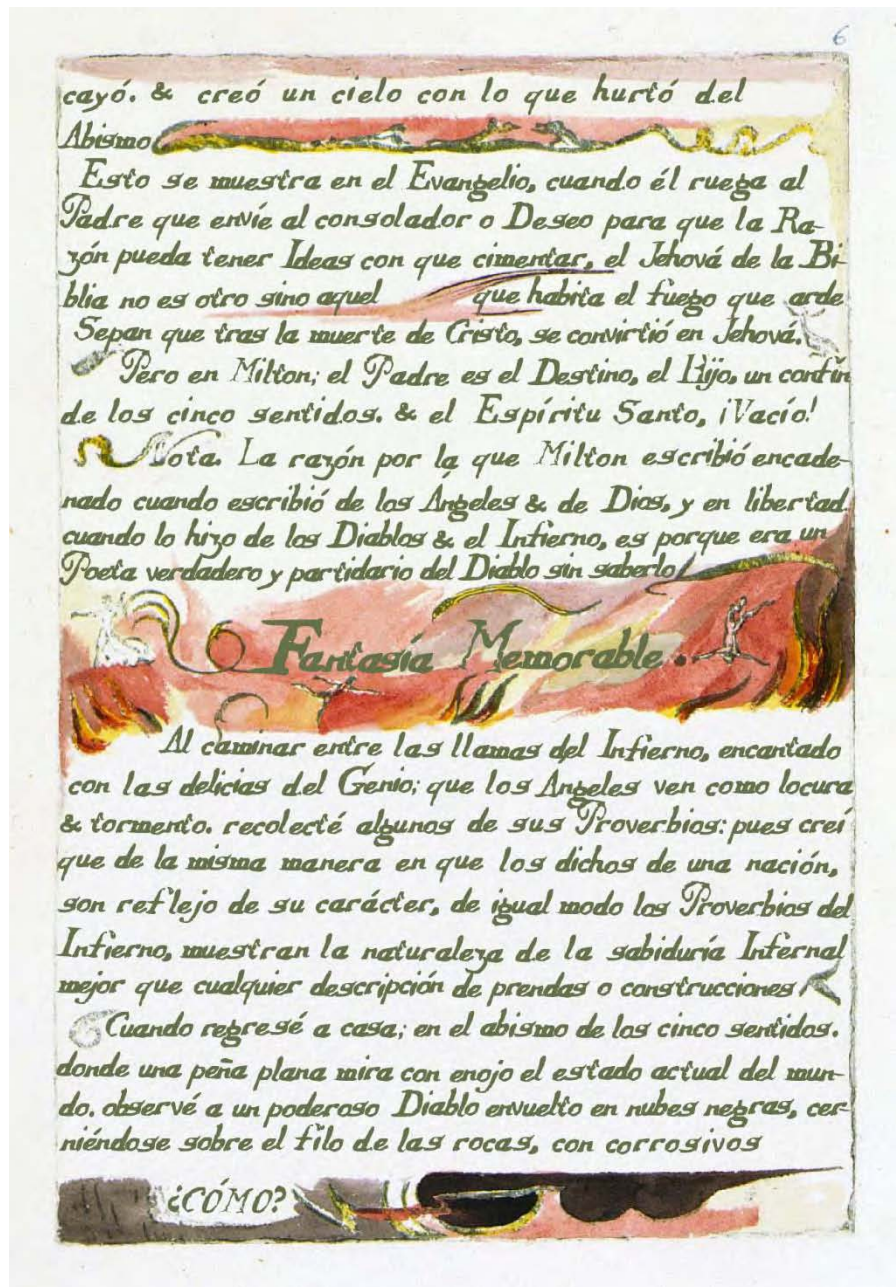 6
cayó. & creó un cielo con lo que hurtó del
Abismo
Esto se muestra en el Evangelio, cuando él ruega al
Padre que envíe al consolador o Deseo para que la Ra-
zón pueda tener Ideas con que cimentar, el Jehová de la Bi-
blia no es otro sino aquel que habita el fuego que arde
Sepan que tras la muerte de Cristo, se convirtió en Jehová.
Pero en Milton; el Padre es el Destino, el Hijo, un confín
de los cinco sentidos. & el Espíritu Santo, ¡Vacío!
Nota. La razón por la que Milton escribió encade-
nado cuando escribió de los Ángeles & de Dios, y en libertad
cuando lo hizo de los Diablos & el Infierno, es porque era un
Poeta verdadero y partidario del Diablo sin saberlo
Fantasía Memorable.
Al caminar entre las llamas del Infierno, encantado
con las delicias del Genio; que los Angeles ven como locura
& tormento. recolecté algunos de sus Proverbios: pues creí
que de la misma manera en que los dichos de una nación,
son reflejo de su carácter, de igual modo los Proverbios del
Infierno, muestran la naturaleza de la sabiduría Infernal
mejor que cualquier descripción de prendas o construcciones
Cuando regresé a casa; en el abismo de los cinco sentidos.
donde una peña plana mira con enojo el estado actual del mun-
do. observé a un poderoso Diablo envuelto en nubes negras, cer-
niéndose sobre el filo de las rocas, con corrosivos
¿CÓMO?